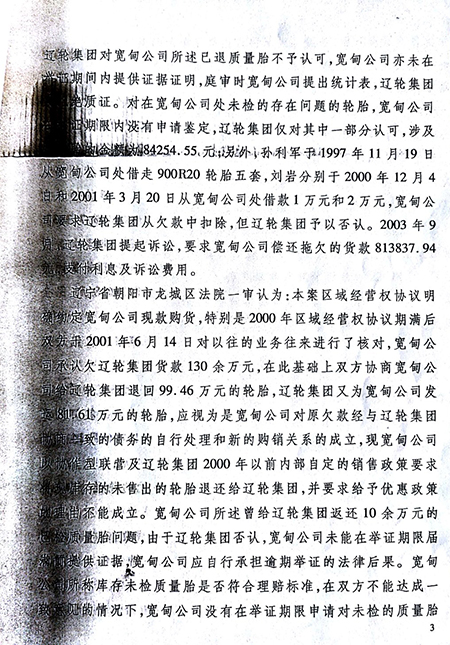 辽轮集团对宽甸公司所述已退质量胎不予认可,宽甸公司亦未在
证期间内提供证据证明,庭审时宽甸公司提出统计表,辽轮集团
质证。对在宽甸公司处未检的存在问题的轮胎,宽甸公司
证期限内没有申请鉴定,辽轮集团仅对其中一部分认可,涉及
84254.55元;另外,孙利军于1997年11月19日
从宽甸公司处借走900R20轮胎五套,刘岩分别于2000年12月4
日和2001年3月20日从宽甸公司处借款1万元和2万元,宽甸公
司要求辽轮集团从欠款中扣除,但辽轮集团予以否认。2003年9
月,辽轮集团提起诉讼,要求宽甸公司偿还拖欠的货款813837.94
付利息及诉讼费用。
辽宁省朝阳市龙城区法院一审认为:本案区域经营权协议明
确约定宽甸公司现款购货,特别是2000年区域经营权协议期满后
双方于2001年6月14日对以往的业务往来进行了核对,宽甸公
司承认欠辽轮集团货款130余万元,在此基础上双方协商宽甸公
司给辽轮集团退回99.46万元的轮胎,辽轮集团又为宽甸公司发
81.61万元的轮胎,应视为是宽甸公司对原欠款经与辽轮集团
致的债务的自行处理和新的购销关系的成立,现宽甸公司
作型联营及辽轮集团2000年以前内部自定的销售政策要求
存的未售出的轮胎退还给辽轮集团,并要求给予优惠政策
由不能成立。宽甸公司所述曾给辽轮集团返还10余万元的
质量胎问题,由于辽轮集团否认,宽甸公司未能在举证期限届
提供证据,宽甸公司应自行承担逾期举证的法律后果。宽甸
公司所称库存未检质量胎是否符合理赔标准,在双方不能达成一
见的情况下,宽甸公司没有在举证期限申请对未检的质量胎
3